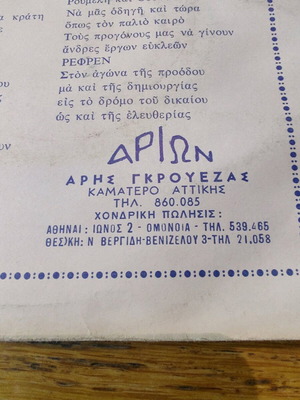 α κράτη
Νὰ μᾶς ὁδηγῆ καὶ τώρα
ὅπως τὸν παλιὸ καιρὸ
Τοὺς προγόνους μας νὰ γίνουν
ἄνδρες ἔργων εὐκλεῶν
ΡΕΦΡΕΝ
Στὸν ἀγώνα τῆς προόδου
μὰ καὶ τῆς δημιουργίας
εἰς τὸ δρόμο τοῦ δικαίου
ὡς καὶ τῆς ἐλευθερίας
ΑΡΙΩΝ
ΑΡΗΣ ΓΚΡΟΥΕΖΑΣ
ΚΑΜΑΤΕΡΟ ΑΤΤΙΚΗΣ
ΤΗΛ. 860.085
ΧΟΝΔΡΙΚΗ ΠΩΛΗΣΙΣ:
ΑΘΗΝΑΙ: ΙΩΝΟΣ 2 - ΟΜΟΝΟΙΑ - ΤΗΛ. 539.465
ΘΕΣ)ΚΗ: Ν ΒΕΡΓΙΔΗ-ΒΕΝΙΖΕΛΟΥ 3-ΤΗΛ 21,058